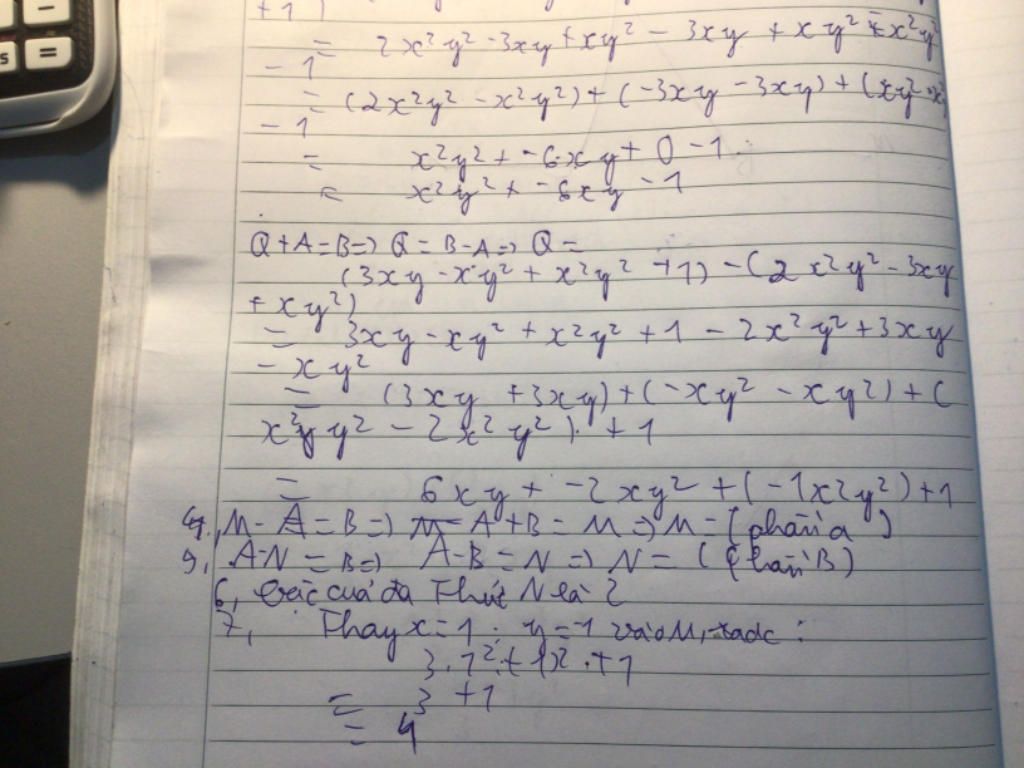 +1)
= 2x²y² - 3xy + xy² - 3xy + xy² - x²y²
- 1
= (2x²y² - x²y²) + (-3xy - 3xy) + (xy²
- 1
= x²y² + -6xy + 0 - 1
= x²y² + -6xy - 1
Q + A = B => Q = B - A => Q =
(3xy - xy² + x²y² + 1) - (2x²y² - 3xy
+ xy²)
= 3xy - xy² + x²y² + 1 - 2x²y² + 3xy
- xy²
= (3xy + 3xy) + (-xy² - xy²) + (
x²y² - 2x²y²) + 1
= 6xy + -2xy² + (-1x²y²) + 1
4, M - A = B => A + B = M => M = (phần a)
5, A-N = B => A-B = N => N = (phần B)
6, Bậc của đa thức N là 2
7, Thay x = 1; y = -1 vào M, ta dc:
3.1² + 1
= 3 + 1
= 4